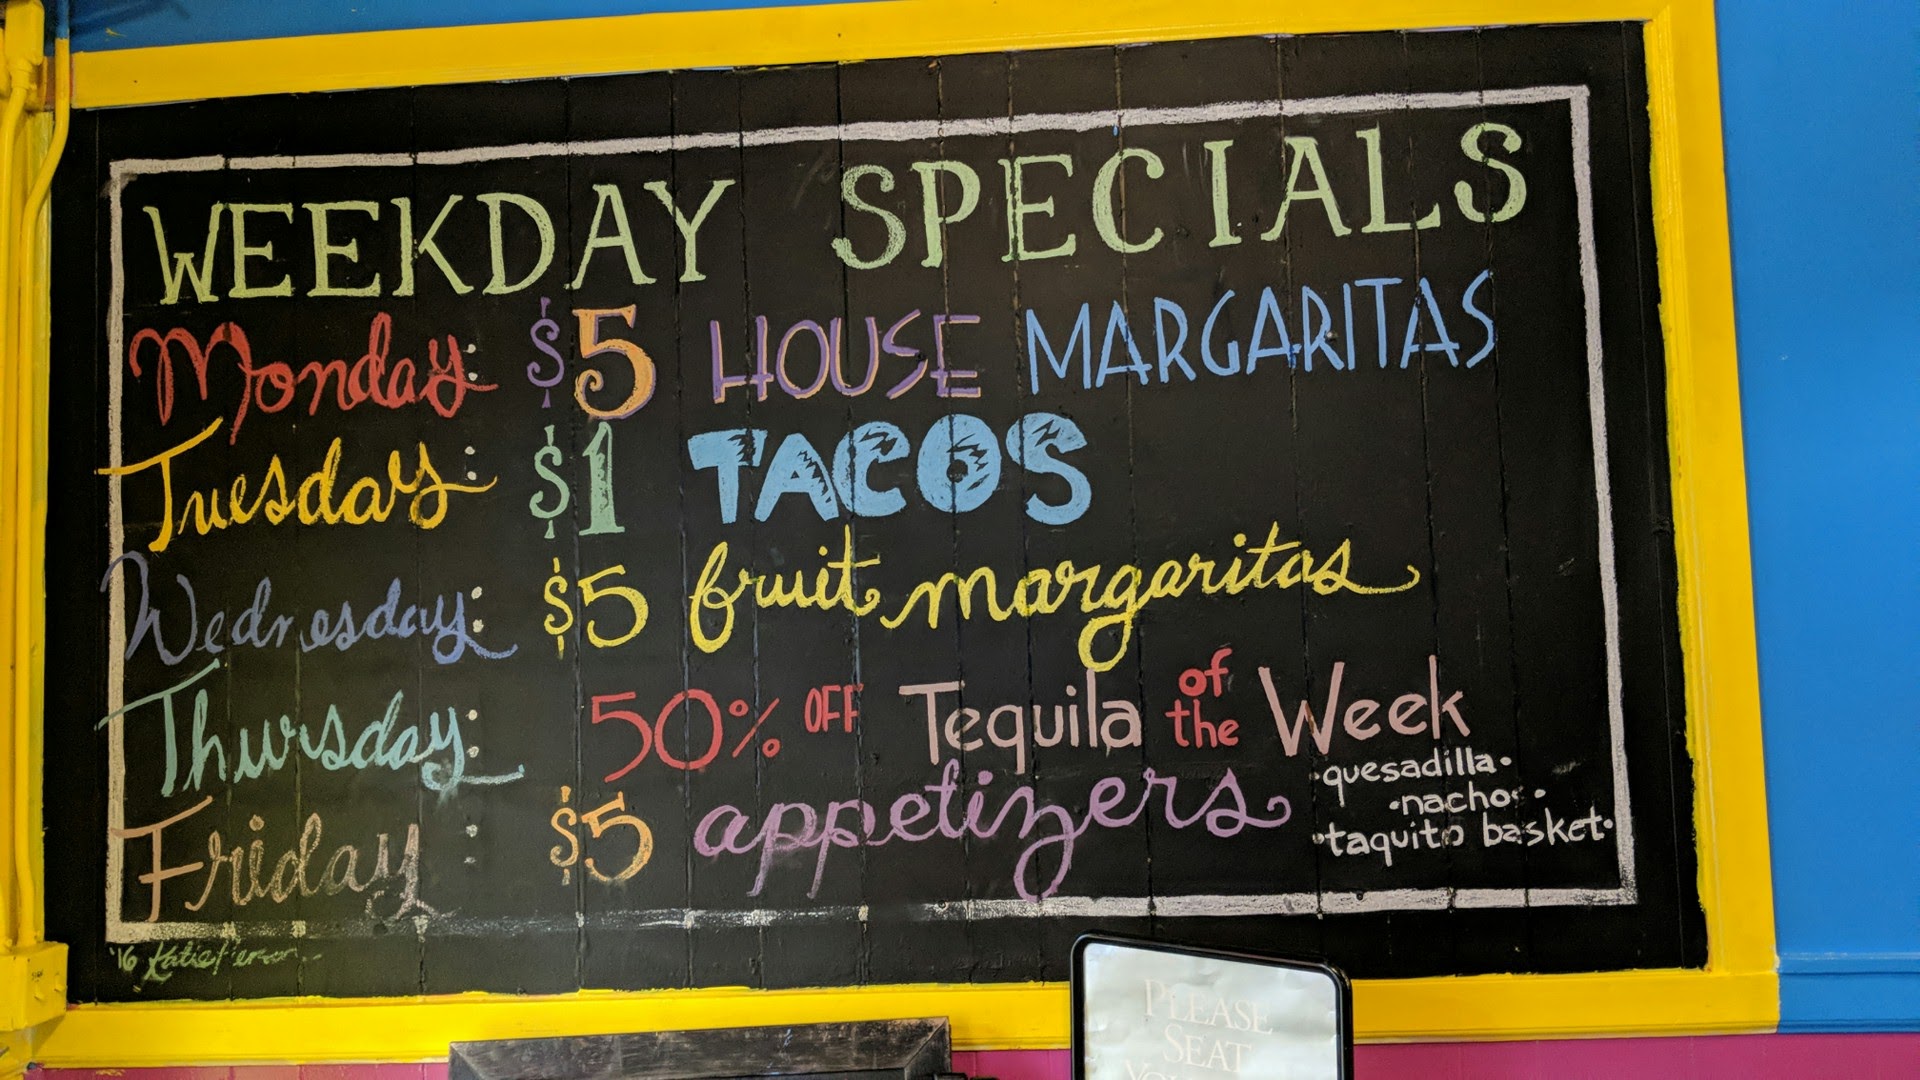 WEEKDAY SPECIALS
Monday: $5 HOUSE MARGARITAS
Tuesday: $1 TACOS
Wednesday: $5 fruit margaritas
Thursday: 50% OFF Tequila of the Week
Friday: $5 appetizers
•quesadilla•
•nachos•
•taquito basket•
'16 Katie
PLEASE
SEAT